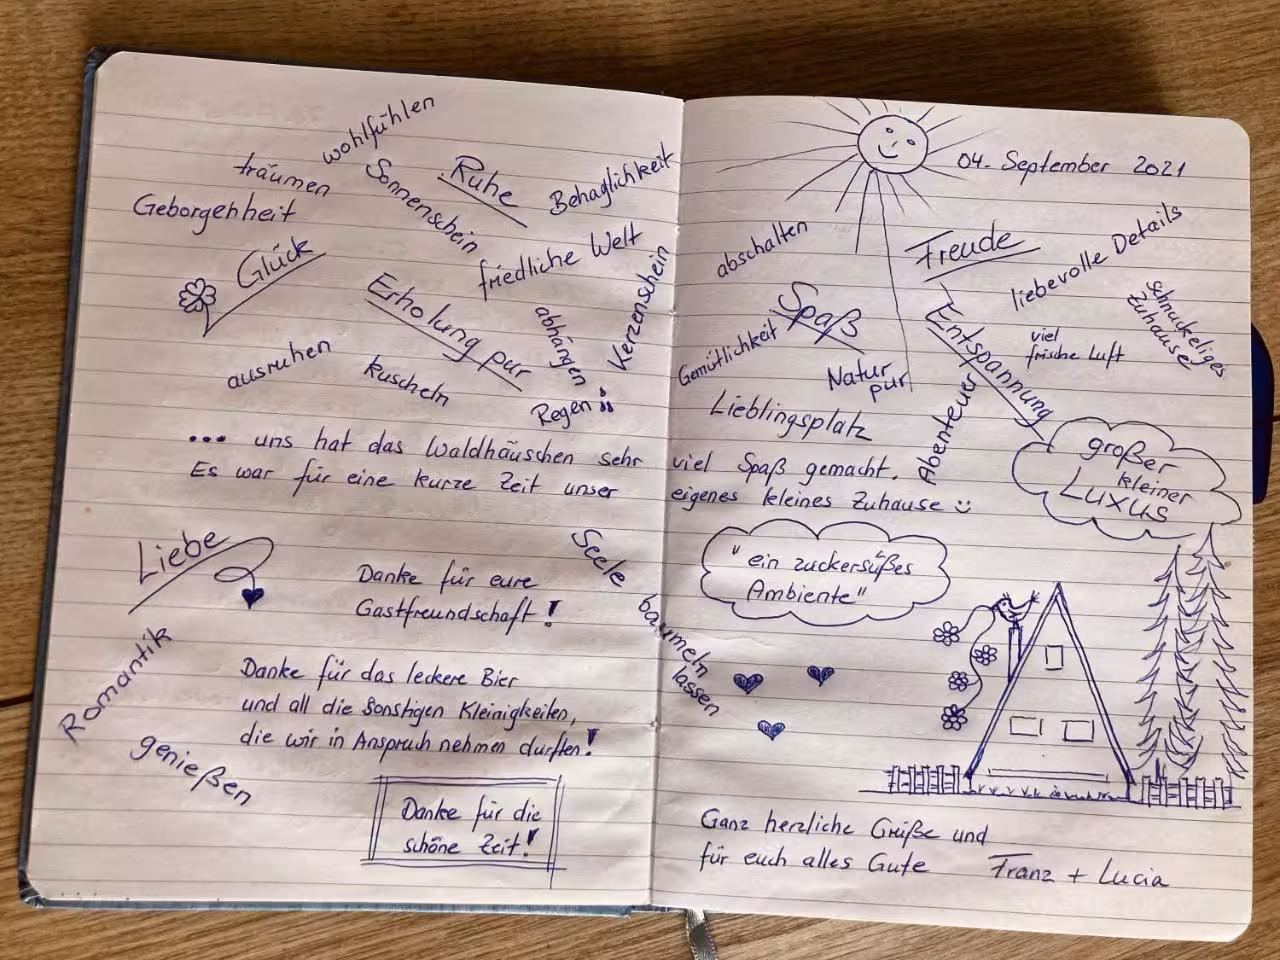 wohlfühlen
träumen
Sonnenschein
Ruhe
Behaglichkeit
Geborgenheit
Glück
friedliche Welt
Erholung pur
abhängen
Kerzenschein
ausruhen
kuscheln
Regen
04. September 2021
abschalten
Freude
liebevolle Details
schnuckeliges
Zuhause
Spaß
Entspannung
viel
frische Luft
Gemütlichkeit
Natur
pur
Abenteuer
Lieblingsplatz
großer
kleiner
Luxus
... uns hat das Waldhäuschen sehr viel Spaß gemacht.
Es war für eine kurze Zeit unser eigenes kleines Zuhause ☺
Liebe
Seele
baumeln
lassen
"ein zuckersüßes
Ambiente"
Danke für eure
Gastfreundschaft!
Romantik
genießen
Danke für das leckere Bier
und all die sonstigen Kleinigkeiten,
die wir in Anspruch nehmen durften!
Danke für die
schöne Zeit!
Ganz herzliche Grüße und
für euch alles Gute Franz + Lucia